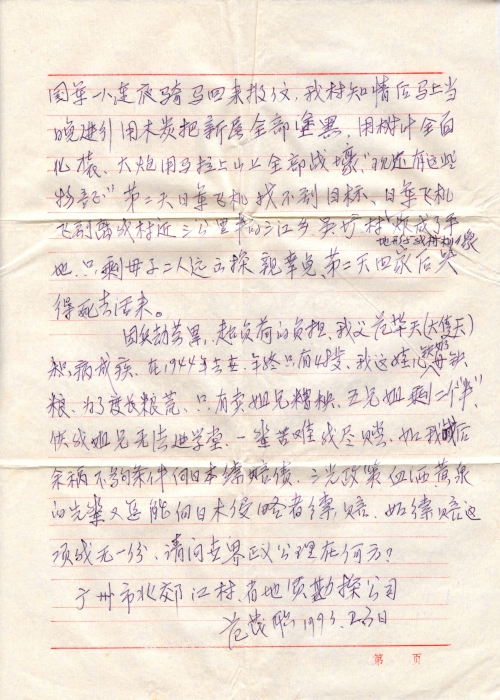 国军小连夜骑马回来报位，我村知情后马上当
晚进引用木炭把新屋全部塗黑、用树叶全面
化装、大炮用马拉上山上全部战壕，"现还有这些
物证"第二天日军飞机找不到目标、日军飞机
飞到离我村近三公里半的三江乡 村炸成了平
地形与我村相像
地、只剩母子二人远出探親幸免、第二天回家后哭
得死去活来。
因劳累、超负荷的负担、我父范华天
积病成疾、在1944年去世、年终只有48岁、我这娃 母缺
粮、为了度长粮荒、只有卖姐兄糟秧、五兄姐剩二个半、
供我姐兄无法进学堂、一辈苦难我尽受、如我
余祸不够条件向日本索赔债、三光政策血洒黄泉
的先辈又怎能向日本侵略者索赔、如索赔这
项我无一份、请问世界正义公理在何方？
广州市北郊江村、省地质勘探公司
范茂 1993.
第 页